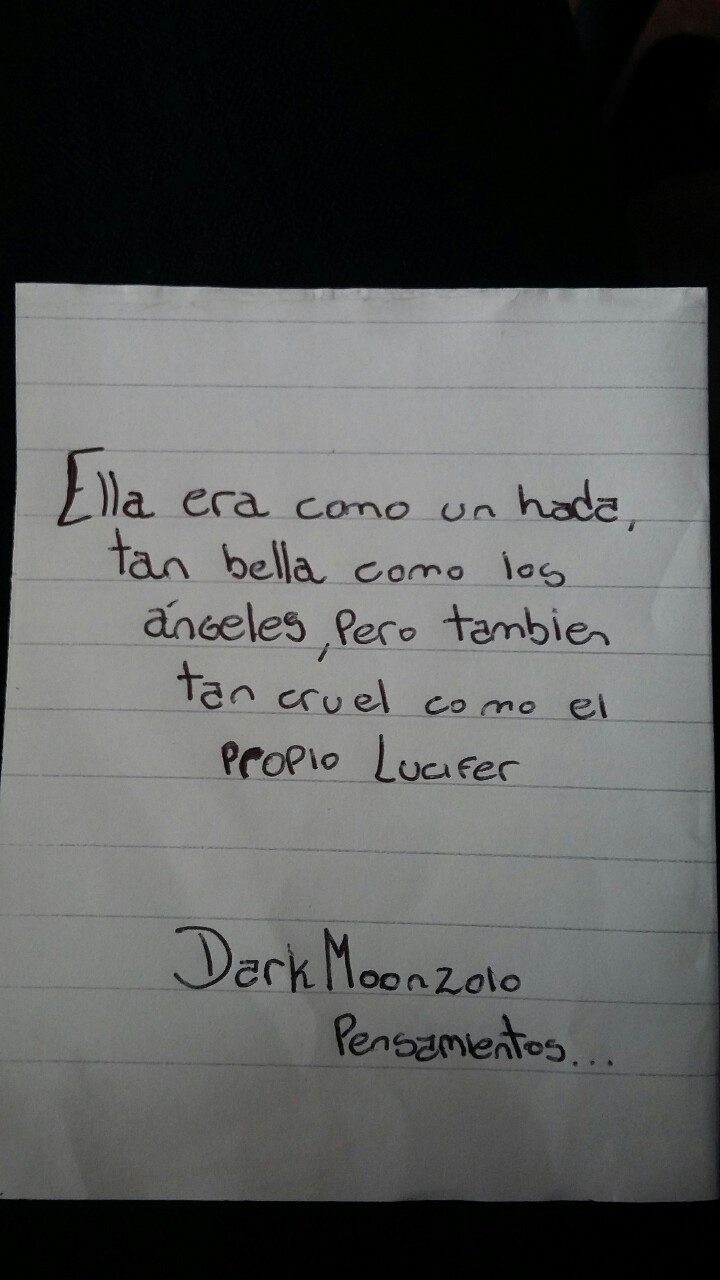 Ella era como un hada,
tan bella como los
ángeles, pero tambien
tan cruel como el
propio Lucifer
DarkMoonzolo
Pensamientos...